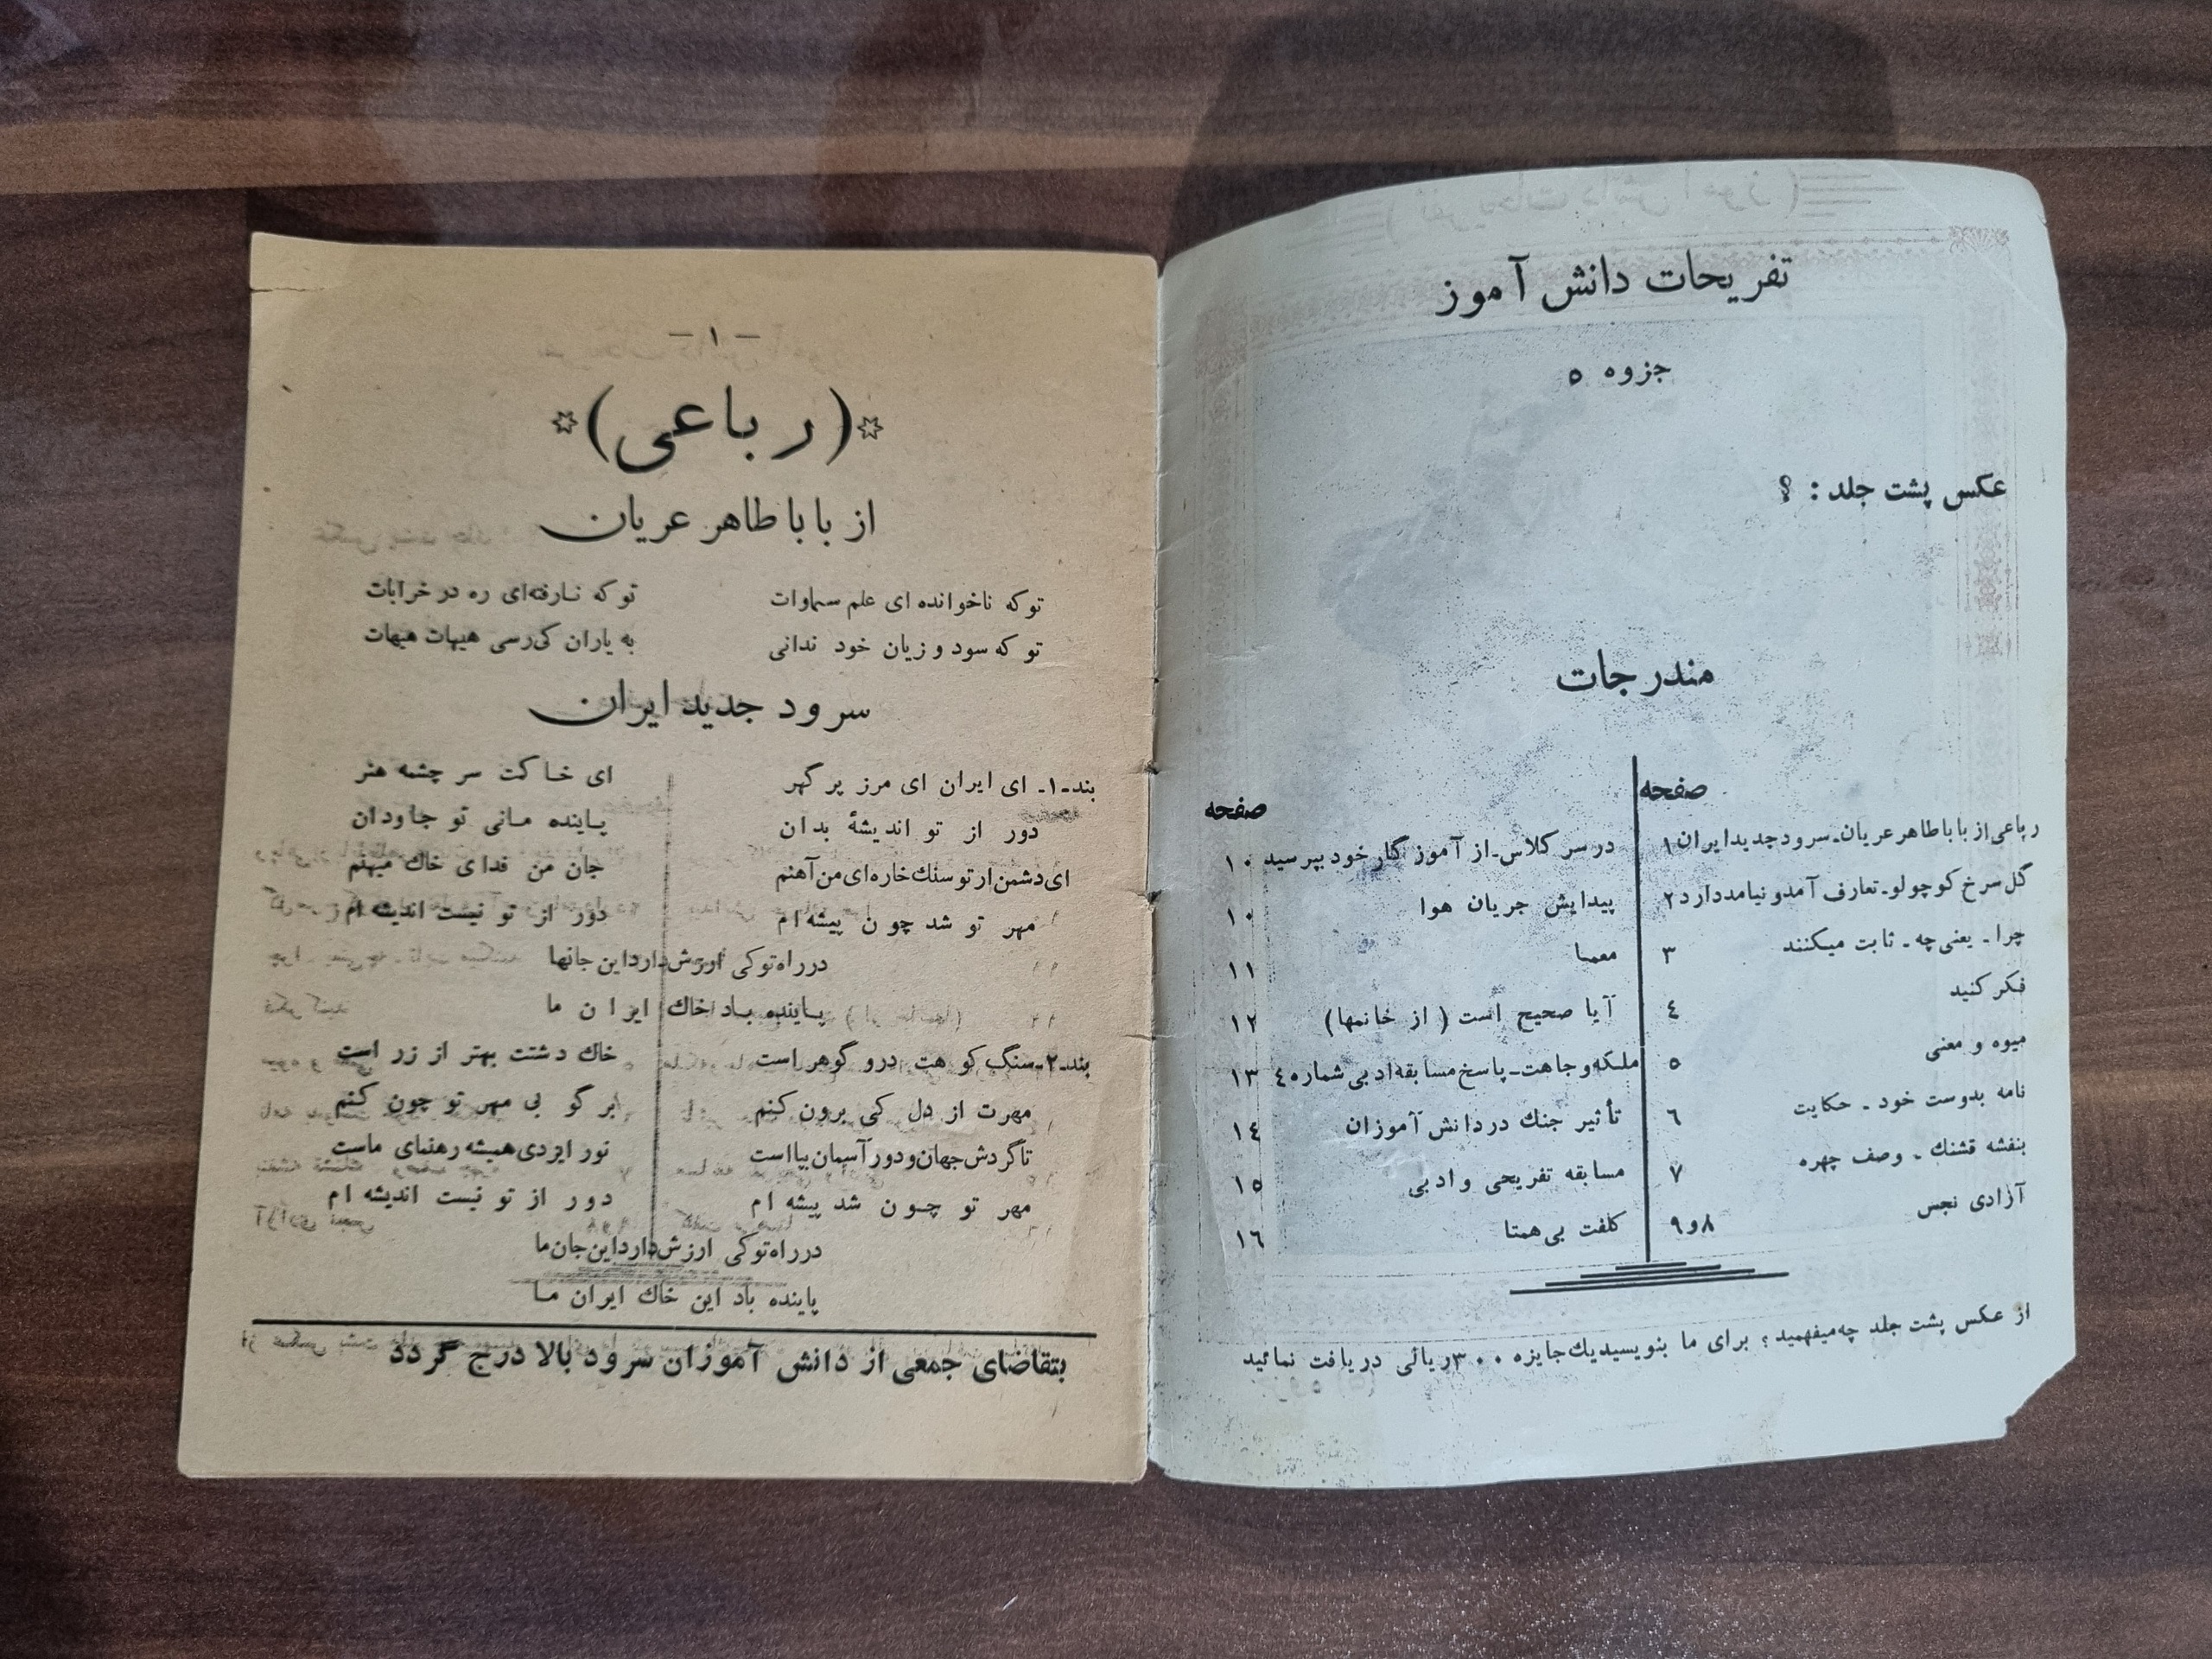 تفریحات دانش آموز
جزوه ۵
عکس پشت جلد : ؟
مندرجات
صفحه
رباعی از بابا طاهر عریان ـ سرود جدید ایران ۱
گل سرخ کوچولو ـ تعارف آمد و نیامد دارد ۲
چرا ـ یعنی چه ـ ثابت میکنند ۳
فکر کنید ٤
میوه و معنی ٥
نامه بدوست خود ـ حکایت ٦
بنفشه قشنك ـ وصف چهره ۷
آزادی نجس ۸ و ۹
صفحه
در سر کلاس ـ از آموزگار خود بپرسید ۱۰
پیدایش جریان هوا ۱۰
معما ۱۱
آیا صحیح است ( از خانمها) ۱۲
ملکه وجاهت ـ پاسخ مسابقه ادبی شماره ٤ ۱۳
تأثیر جنك در دانش آموزان ۱٤
مسابقه تفریحی و ادبی ۱٥
کلفت بی همتا ۱٦
از عکس پشت جلد چه میفهمید ؟ برای ما بنویسید یك جایزه ۳۰۰ ریالی دریافت نمائید
ـ ۱ ـ
(رباعی)
از بابا طاهر عریان
تو که ناخوانده ای علم سماوات تو که نارفته‌ای ره در خرابات
تو که سود و زیان خود ندانی به یاران کی رسی هیهات هیهات
سرود جدید ایران
بند ـ ۱ ـ ای ایران ای مرز پر گهر ای خاکت سر چشمه هنر
دور از تو اندیشهٔ بدان پاینده مانی تو جاودان
ای دشمن ار تو سنك خاره ای من آهنم جان من فدای خاك میهنم
مهر تو شد چون پیشه ام دور از تو نیست اندیشه ام
در راه تو کی ارزش دارد این جانها
پاینده باد خاك ایران ما
بند ـ ۲ ـ سنگ کوهت در و گوهر است خاك دشتت بهتر از زر است
مهرت از دل کی برون کنم بر گو بی مهر تو چون کنم
تا گردش جهان و دور آسمان بپا است نور ایزدی همیشه رهنمای ماست
مهر تو چون شد پیشه ام دور از تو نیست اندیشه ام
در راه تو کی ارزش دارد این جان ما
پاینده باد این خاك ایران ما
بتقاضای جمعی از دانش آموزان سرود بالا درج گردد